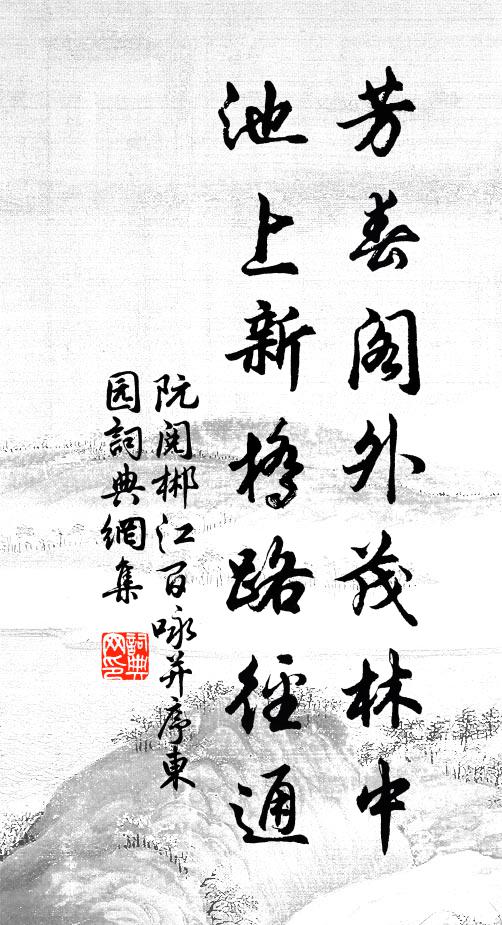 芳春阁外茂林中
池上新桥路径通
阮阅郴江百咏并序東
园詞典網集
詞典
网印